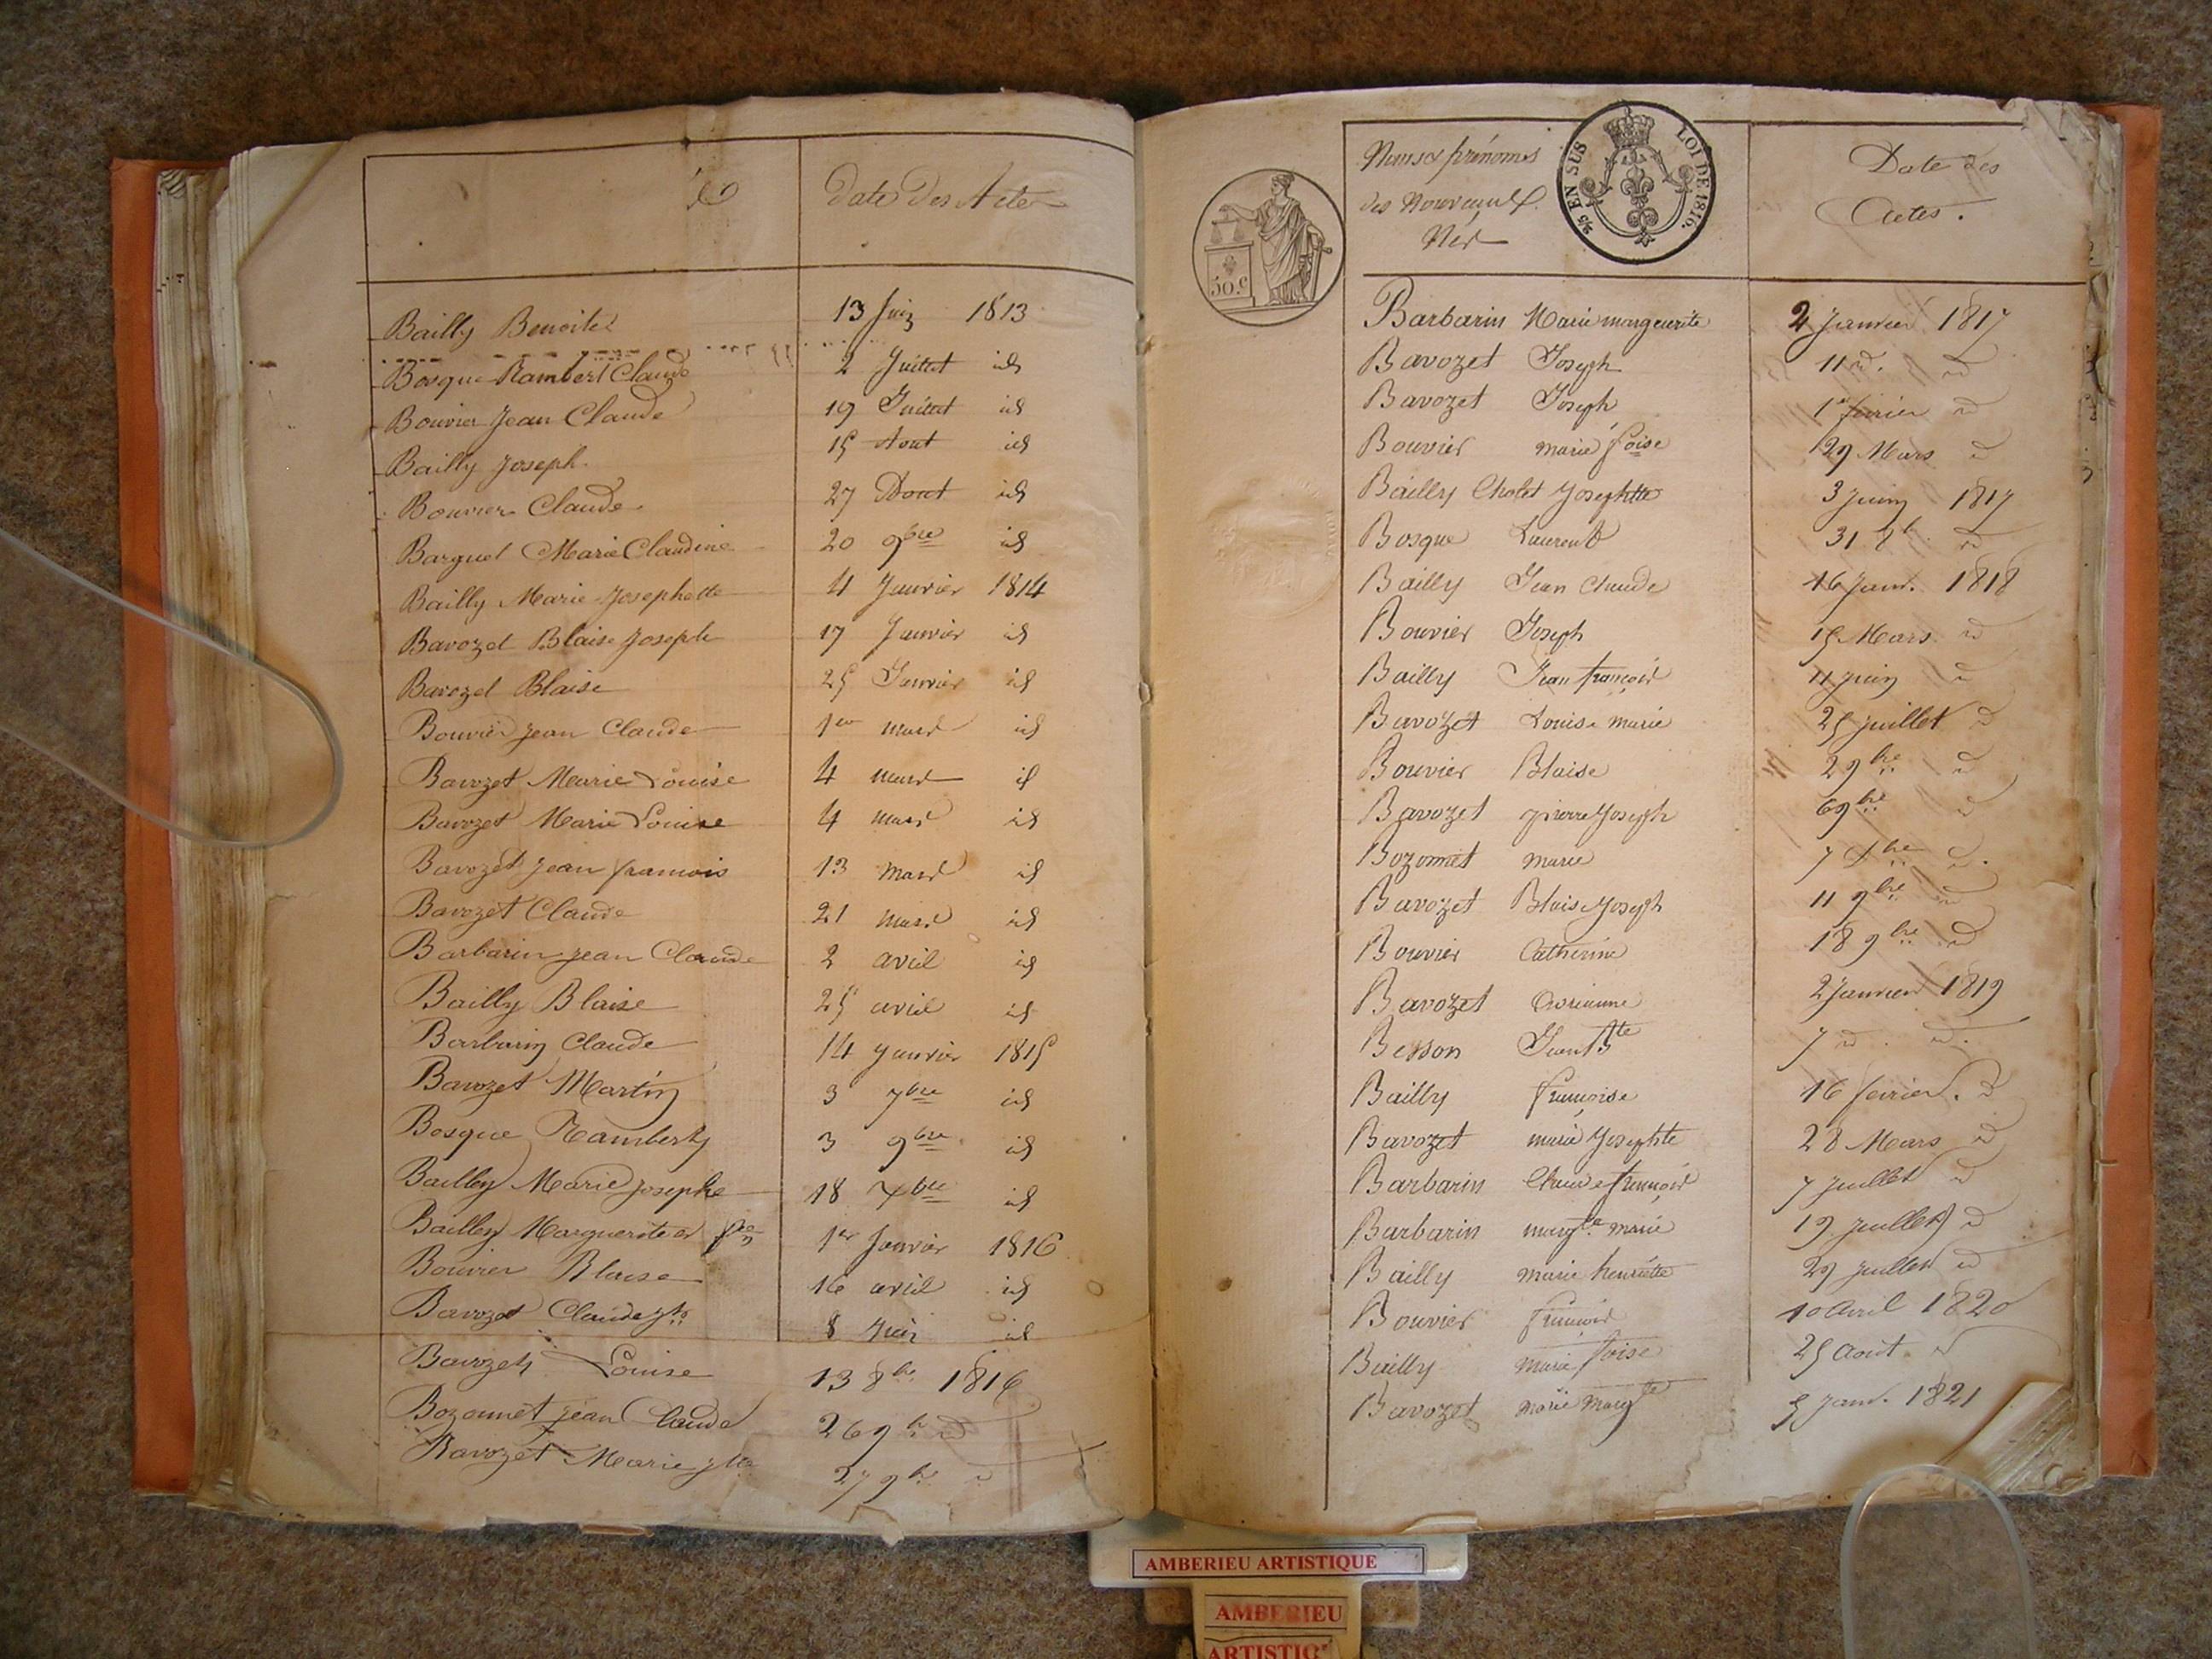 Date des Actes
Bailly Benoite 13 Juin 1813
Bosque Rambert Claude 2 Juillet id
Bouvier Jean Claude 19 Juillet id
Bailly Joseph 15 Aout id
Bouvier Claude 27 Aout id
Barguet Marie Claudine 20 9bre id
Bailly Marie Josephette 4 Janvier 1814
Bavozet Blaise Joseph 17 Janvier id
Bavozet Blaise 25 Janvier id
Bouvier Jean Claude 1er mars id
Bavozet Marie Louise 4 mars id
Bavozet Marie Louise 4 mars id
Bavozet Jean francois 13 mars id
Bavozet Claude 21 mars id
Barbarin Jean Claude 2 avril id
Bailly Blaise 25 avril id
Barbarin Claude 14 Janvier 1815
Bavozet Martin 3 7bre id
Bosque Rambert 3 9bre id
Bailly Marie Josephe 18 Xbre id
Bailly Marguerite 1er Janvier 1816
Bouvier Blaise 16 avril id
Bavozet Claude 8 Juin id
Bavozet Louise 13 8bre 1816
Bozonnet Jean Claude 26 9bre d
Bavozet Marie Jtte 27 9bre d
50.c
5/10 EN SUS LOI DE 1816.
Noms et prénoms
des Nouveaux
Nés
Date des
Actes.
Barbarin Marie marguerite 2 Janvier 1817
Bavozet Joseph 11 d. d
Bavozet Joseph 1er fevrier d
Bouvier marie foise 29 Mars d
Bailly Cholet Josephtte 3 Juin 1817
Bosque Laurent 31 8bre d
Bailly Jean Claude 16 Janv. 1818
Bouvier Joseph 15 Mars d
Bailly Jean françois 11 Juin d
Bavozet Louise marie 25 juillet d
Bouvier Blaise 2 9bre d
Bavozet pierre Joseph 6 9bre d
Bozonnet marie 7 bre d.
Bavozet Blaise Joseph 11 9bre d
Bouvier Catherine 18 9bre d
Bavozet 2 Janvier 1819
Besson Jean Bte 7 d. d.
Bailly françoise 16 fevrier. d
Bavozet marie Josephte 28 Mars d
Barbarin Claude françois 7 juillet d
Barbarin margte marie 19 juillet d
Bailly marie henriette 29 juillet d
Bouvier françois 10 Avril 1820
Bailly marie foise 25 Aout d
Bavozet marie margte 5 Janv. 1821
AMBERIEU ARTISTIQUE
AMBERIEU
ARTISTIQ